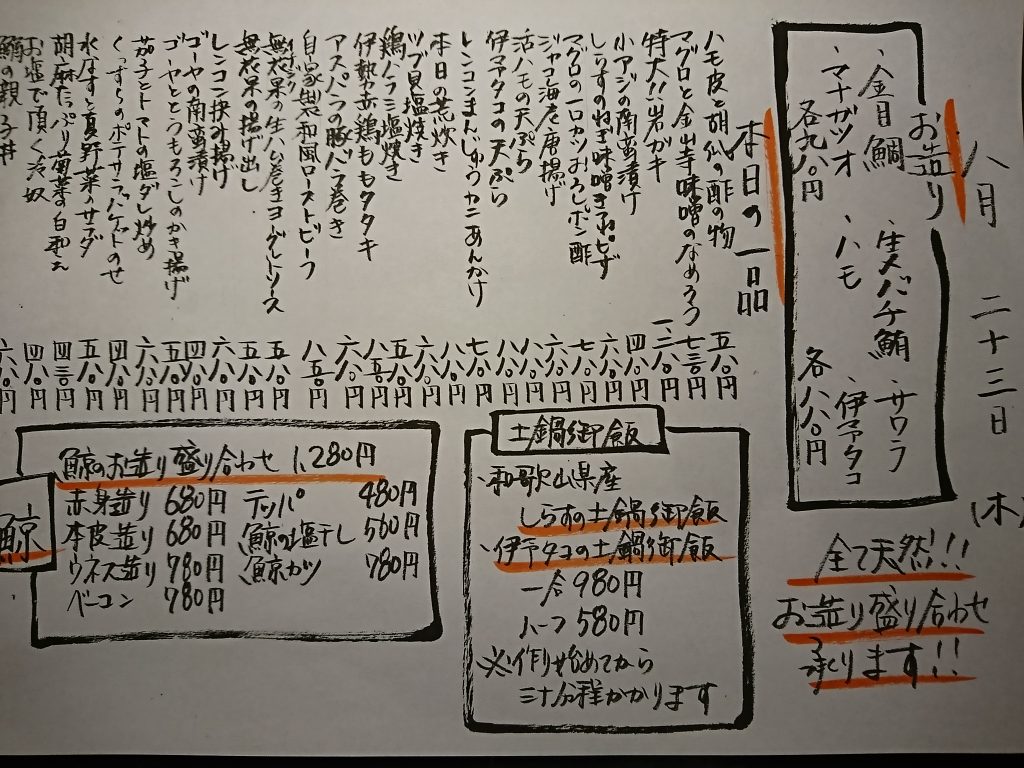 八月 二十三日 (木
お造り
、金目鯛 、生メバチ鮪 、サワラ
、マナガツオ 、ハモ 、伊予タコ
各九八〇円 各八八〇円
全て天然!!
お造り盛り合わせ
承ります!!
本日の一品
ハモ皮と胡瓜の酢の物 五八〇円
マグロと金山寺味噌のなめろう 七三〇円
特大!!岩ガキ
小アジの南蛮漬け 四八〇円
しらすのねぎ味噌きつねピザ 六八〇円
マグロの一口カツおろしポン酢 七八〇円
ジャコ海老唐揚げ 六八〇円
活ハモの天ぷら 八八〇円
伊予タコの天ぷら 八八〇円
レンコンまんじゅうカニあんかけ 七八〇円
本日の荒炊き 八八〇円
ツブ貝塩焼き 六八〇円
鶏ハラミ塩焼き 五八〇円
伊勢赤鶏ももタタキ 八五〇円
アスパラの豚バラ巻き 六八〇円
自家製和風ローストビーフ 八五〇円
無花果の生ハム巻きヨーグルトソース 五八〇円
無花果の揚げ出し 五八〇円
レンコン挟み揚げ 六八〇円
ゴーヤの南蛮漬け 四八〇円
ゴーヤととうもろこしのかき揚げ 五八〇円
茄子とトマトの塩ダレ炒め 六八〇円
くんずらのポテサラバケットのせ 四八〇円
水なすと夏野菜のサラダ 五八〇円
胡麻たっぷり菊菜の白和え 四三〇円
お塩で頂く冷奴 四八〇円
鯛の親子丼 六八〇円
土鍋御飯
、和歌山県産
しらすの土鍋御飯
、伊予タコの土鍋御飯
一合 980円
ハーフ 580円
※作り始めてから
三十分程かかります
鯨
鯨のお造り盛り合わせ 1,280円
赤身造り 680円 テッパ 480円
本皮造り 680円 鯨の塩干し 560円
ウネス造り 780円 鯨カツ 780円
ベーコン 780円